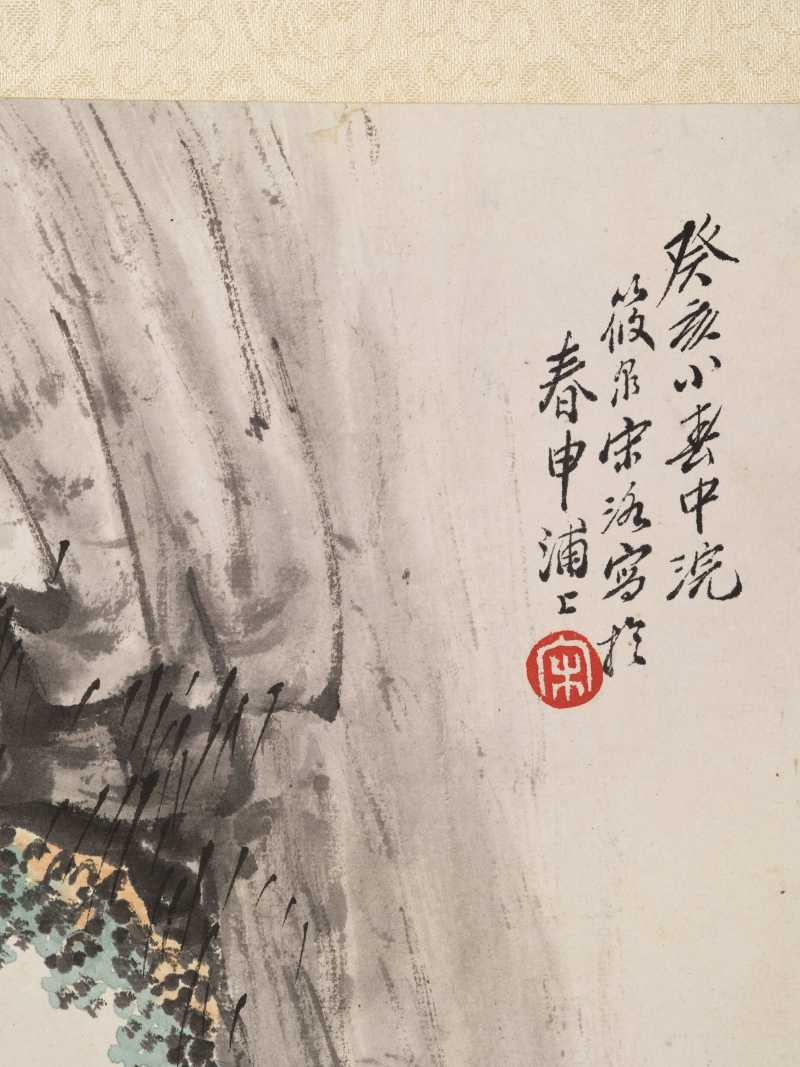 癸亥小春中浣
筱泉宋洛寫於
春申浦上
宋